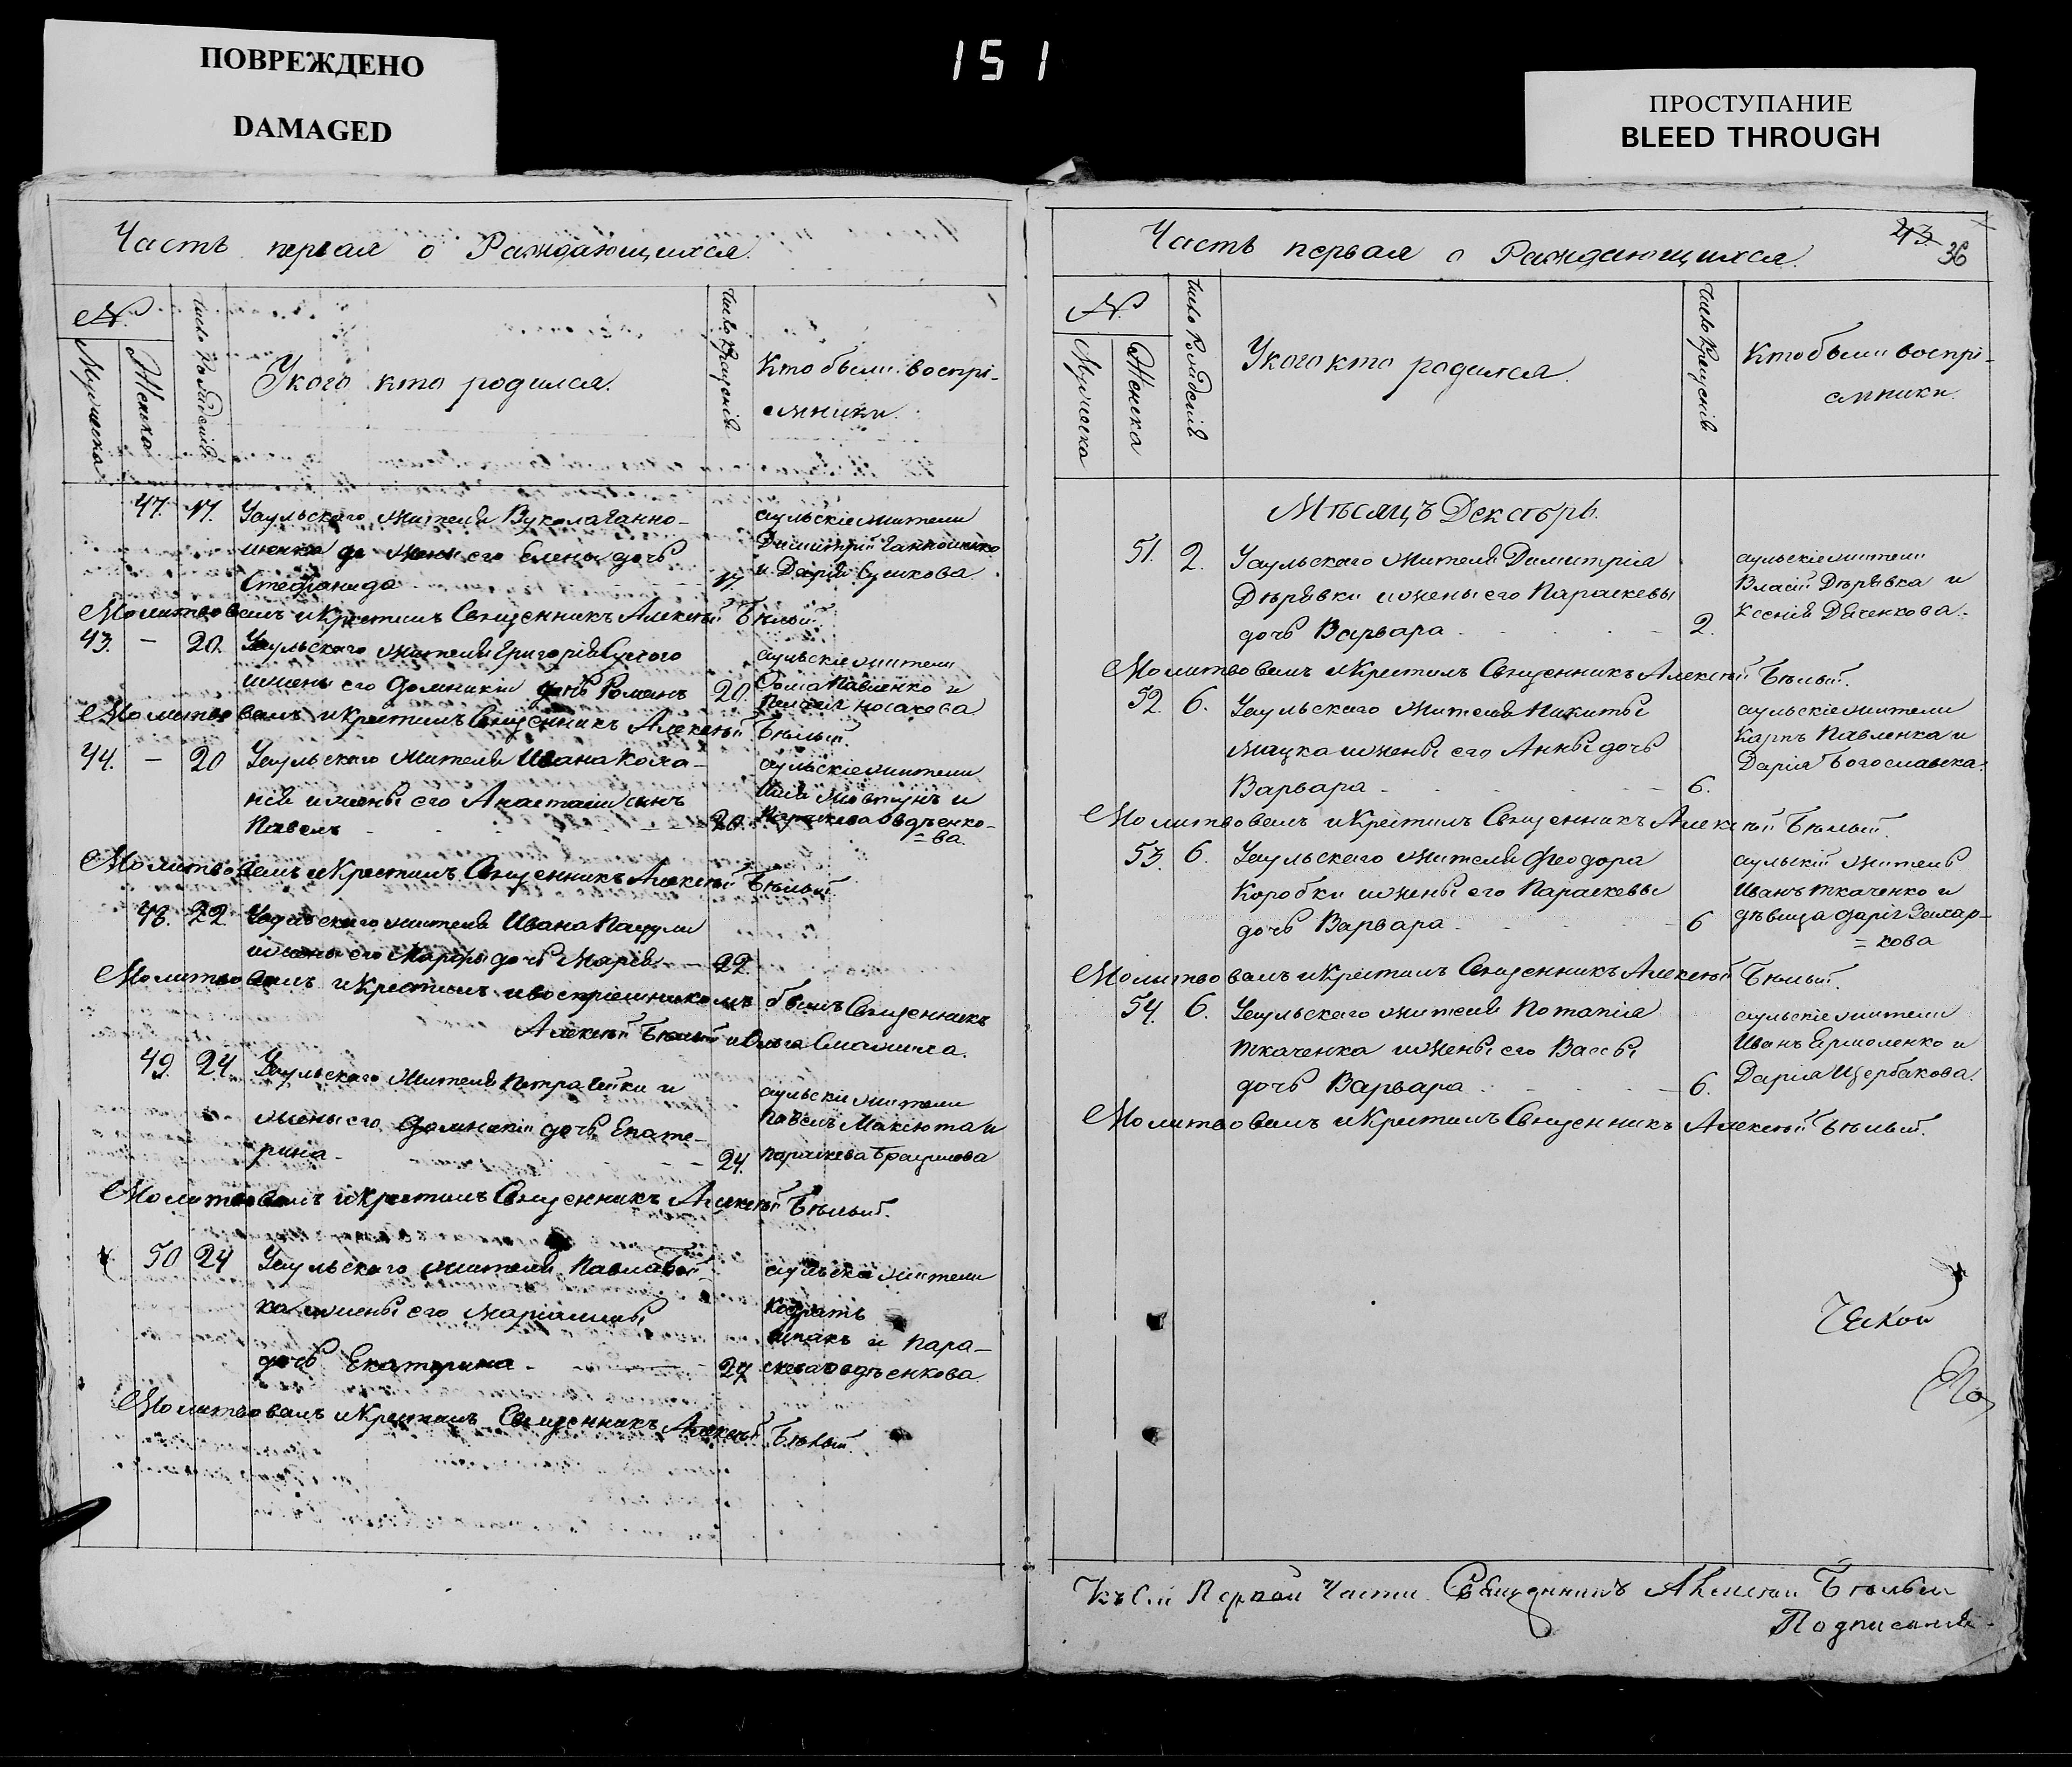 ПОВРЕЖДЕНО
DAMAGED
151
ПРОСТУПАНИЕ
BLEED THROUGH
Часть первая о Раждающихся.
№
Мужеска
Женска
Число Рожденія
У кого кто родился.
Число Крещенія
Кто были воспрі-
емники.
47. 17. У аульскаго жителя Вукола Ганно-
шенка жены его Елены дочь
Стефанида 17
аульскіе жители
Димитрій Ганношенко
и Дарія Сушкова.
Молитвовалъ и Крестилъ Священникъ Алексѣй Бѣлый.
43. - 20. У аульскаго жителя Григорія
жены его Домникіи Романъ 20.
аульскіе жители
Павленко и
Носакова
Молитвовалъ и Крестилъ Священникъ Алексѣй Бѣлый.
44. - 20 У аульскаго жителя Ивана
и жены его Анастасіи сынъ
Павелъ 20.
аульскіе жители
Илія Мовтунъ и
Параскева Овдѣенко-
=ва.
Молитвовалъ и Крестилъ Священникъ Алексѣй Бѣлый
48. 22. У аульскаго жителя Ивана
и жены его Марфы дочь Марія 22
Молитвовалъ и Крестилъ и воспріемникомъ былъ Священникъ
Алексѣй Бѣлый и Ольга
49. 24. У аульскаго жителя Петра и
жены его Домникіи дочь Екате-
рина 24.
аульскіе жители
Павелъ Максюта и
Параскева
Молитвовалъ и Крестилъ Священникъ Алексѣй Бѣлый.
50 24 У аульскаго жителя Павла Бой-
ка и жены его Маріанны
дочь Екатерина 24
аульскіе жители
Кодратъ
Шпакъ и Пара-
скева Овдѣенкова.
Молитвовалъ и Крестилъ Священникъ Алексѣй Бѣлый.
Часть первая о Раждающихся.
43.
36
№
Мужеска
Женска
Число Рожденія
У кого кто родился.
Число Крещенія
Кто были воспрі-
емники.
Мѣсяцъ Декабрь.
51. 2. У аульскаго жителя Димитрія
Дѣрѣвки и жены его Параскевы
дочь Варвара 2.
аульскіе жители
Власій Дѣрѣвка и
Ксенія Дяченкова.
Молитвовалъ и Крестилъ Священникъ Алексѣй Бѣлый.
52. 6. У аульскаго жителя Никиты
Мацка и жены его Анны дочь
Варвара 6.
аульскіе жители
Карпъ Павленка и
Дарія Богославска.
Молитвовалъ и Крестилъ Священникъ Алексѣй Бѣлый.
53. 6. У аульскаго жителя Феодора
Коробки и жены его Параскевы
дочь Варвара 6
аульскій житель
Иванъ Ткаченко и
дѣвица Дарія Захар-
=кова
Молитвовалъ и Крестилъ Священникъ Алексѣй Бѣлый.
54. 6. У аульскаго жителя Потапія
Ткаченка и жены его Вассы
дочь Варвара 6.
аульскіе жители
Иванъ Ермоленко и
Дарія Щербакова.
Молитвовалъ и Крестилъ Священникъ Алексѣй Бѣлый.
Къ сей Первой Части Священникъ Алексѣй Бѣлый
Подписался